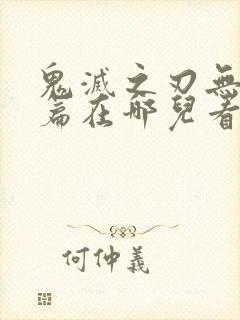 鬼滅之刃無
篇在哪兒看
何仲義